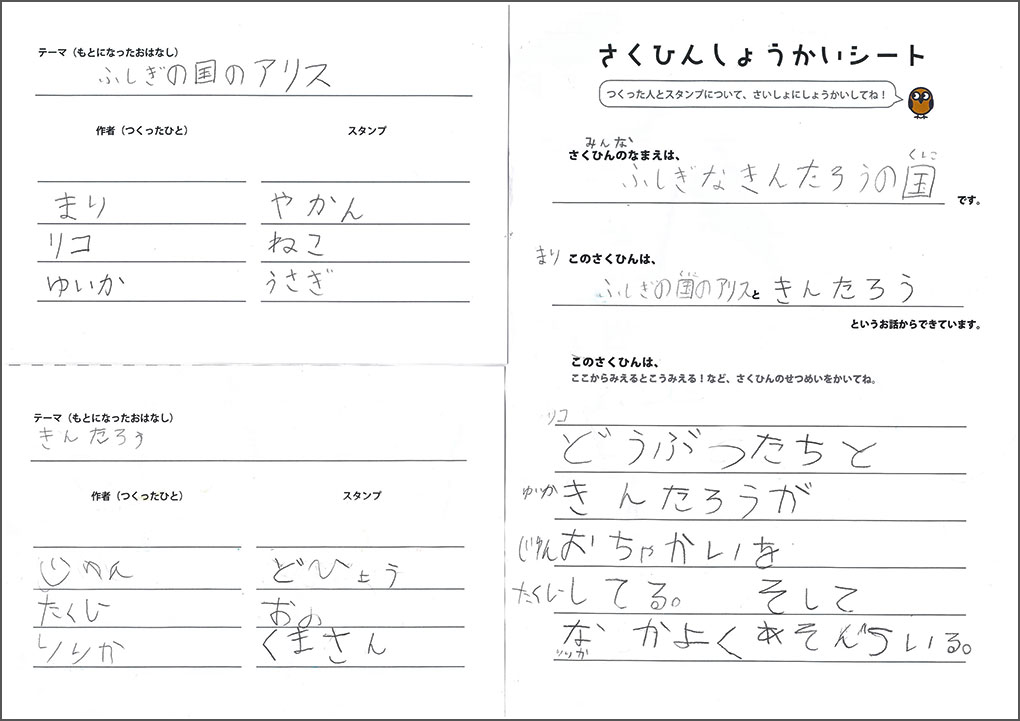 テーマ（もとになったおはなし）
ふしぎの国のアリス
作者（つくったひと） スタンプ
まり やかん
リコ ねこ
ゆいか うさぎ
テーマ（もとになったおはなし）
きんたろう
作者（つくったひと） スタンプ
じゅん どひょう
たくじ おの
りりか くまさん
さくひんしょうかいシート
つくった人とスタンプについて、さいしょにしょうかいしてね！
みんな
さくひんのなまえは、
くに
ふしぎなきんたろうの国
です。
まり このさくひんは、
くに
ふしぎの国のアリスと きんたろう
というお話からできています。
このさくひんは、
ここからみえるとこうみえる！など、さくひんのせつめいをかいてね。
リコ
どうぶつたちと
きんたろうが
じゅん おちゃかいを
してる。 そして
なかよくあそんでいる。
りりか